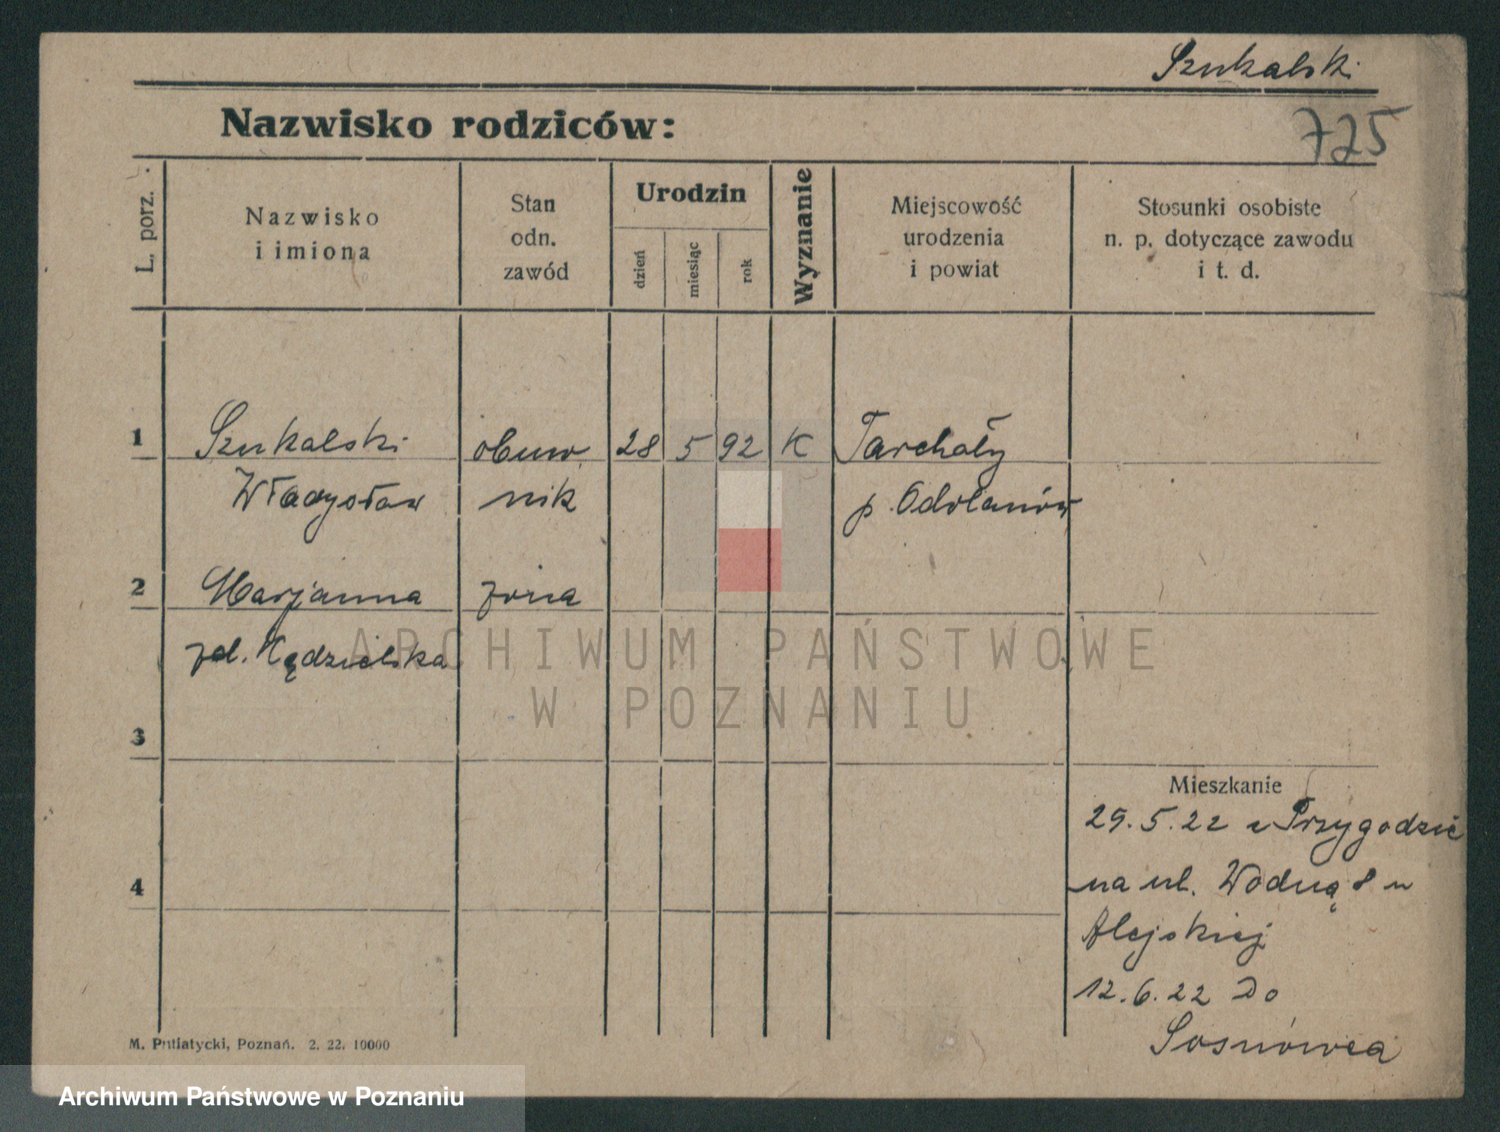 Szukalski
725
Nazwisko rodziców:
L. porz.
Nazwisko
i imiona
Stan
odn.
zawód
Urodzin
dzień
miesiąc
rok
Wyznanie
Miejscowość
urodzenia
i powiat
Stosunki osobiste
n. p. dotyczące zawodu
i t. d.
1
Szukalski
obuw
28
5
92
K
Tarchały
Władysław
nik
p. Odolanów
2
Marjanna
żona
zd. Kędzielska
ARCHIWUM PAŃSTWOWE
W POZNANIU
3
Mieszkanie
29.5.22 z Przygodzic
4
na ul. Wodną 8 u
Alejskiej
12.6.22 do
Sosnówca
M. Putiatycki, Poznań. 2. 22. 10000
Archiwum Państwowe w Poznaniu